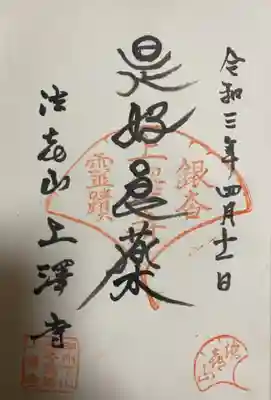 令和三年四月十一日
銀杏
是好良薬
靈蹟
法喜山上澤寺
法喜山